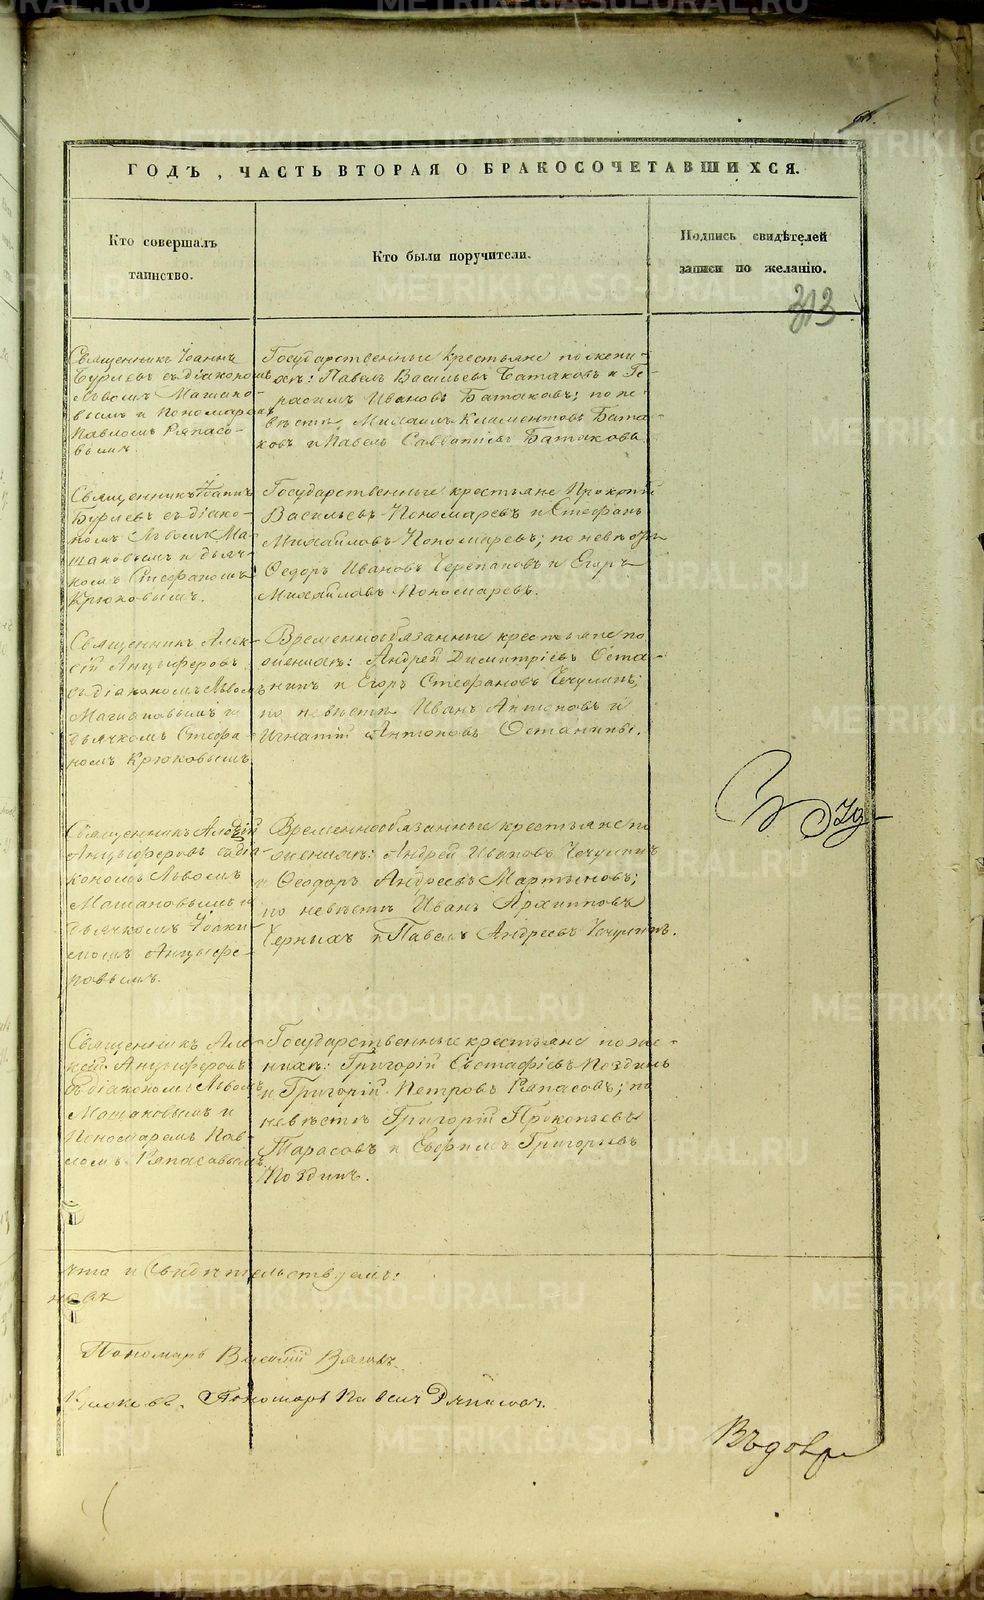 ГОДЪ, ЧАСТЬ ВТОРАЯ О БРАКОСОЧЕТАВШИХСЯ.
Кто совершалъ
таинство.
Кто были поручители.
Подпись свидѣтелей
записи по желанію.
313
Священникъ Іоаннъ
Бурлевъ съ діакономъ
Львомъ
и Пономаремъ
Павломъ Ряпасо-
вымъ.
Государственные крестьяне по жени-
хѣ: Павелъ Васильевъ Батаковъ и Ге-
расимъ Ивановъ Батаковъ; по не-
вѣстѣ Михаилъ Климентовъ Бата-
ковъ и Павелъ Савватіевъ Батаковъ.
Священникъ Іоаннъ
Бурлевъ съ діако-
номъ Львомъ Ма-
шановымъ и дьяч-
комъ Стефаномъ
Крюковымъ.
Государственные крестьяне Прокопій
Васильевъ Пономаревъ и Стефанъ
Михайловъ Пономаревъ; по невѣстѣ
Ѳедоръ Ивановъ Черепановъ и Егоръ
Михайловъ Пономаревъ.
Священникъ Алек-
сій Анцыферовъ
съ діакономъ Львомъ
Машановымъ и
дьячкомъ Стефа-
номъ Крюковымъ.
Временнообязанные крестьяне по
женихѣ: Андрей Димитріевъ Оста-
нинъ и Егоръ Стефановъ Чечулинъ;
по невѣстѣ Иванъ Антоновъ и
Игнатій Антоновъ Останины.
Священникъ Алексій
Анцыферовъ съ діа-
кономъ Львомъ
Машановымъ и
дьячкомъ Іоаки-
момъ Анцыфе-
ровымъ.
Временнообязанные крестьяне по
женихѣ: Андрей Ивановъ Чечулинъ
и Ѳеодоръ Андреевъ Мартыновъ;
по невѣстѣ Иванъ Архиповъ
Черныхъ и Павелъ Андреевъ Чечулинъ.
Священникъ Але-
ксій Анцыферовъ
съ діакономъ Львомъ
Машановымъ и
Пономаремъ Пав-
ломъ Ряпасовымъ.
Государственные крестьяне по же-
нихѣ: Григорій Евстафіевъ Поздинъ
и Григорій Петровъ Ряпасовъ; по
невѣстѣ Григорій Прокопьевъ
Тарасовъ и Евфимъ Григорьевъ
Поздинъ.
что и свидѣтельствуемъ:
Пономарь Василій
Крюковъ. Пономарь Павелъ Ряпасовъ.
METRIKI.GASO-URAL.RU